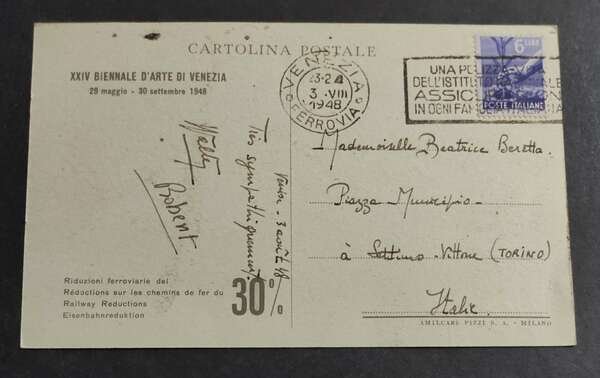 CARTOLINA POSTALE
XXIV BIENNALE D'ARTE DI VENEZIA
29 maggio - 30 settembre 1948
VENEZIA
23-24
3 VIII
1948
FERROVIA
6 LIRE
POSTE ITALIANE
UNA POLIZZA
DELL'ISTITUTO
IN OGNI FAMIGLIA ITALIANA
Mademoiselle Beatrice Beretta
Piazza Municipio
à Settimo-Vittone (TORINO)
Italie
3 août 48
Très sympathiquement
Robert
Riduzioni ferroviarie del
Réductions sur les chemins de fer du
Railway Reductions
Eisenbahnreduktion
30%
AMILCARE PIZZI S. A. - MILANO